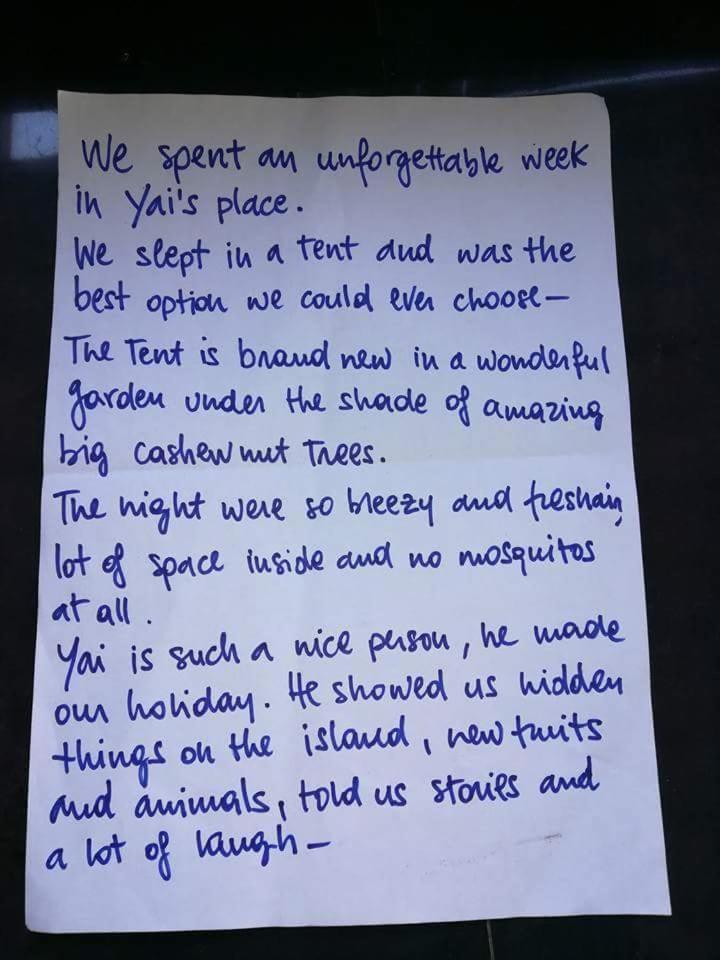 We spent an unforgettable week
in Yai's place.
We slept in a tent and was the
best option we could ever choose—
The Tent is brand new in a wonderful
garden under the shade of amazing
big cashew nut Trees.
The night were so breezy and freshair,
lot of space inside and no mosquitos
at all.
Yai is such a nice person, he made
our holiday. He showed us hidden
things on the island, new fruits
and animals, told us stories and
a lot of laugh—